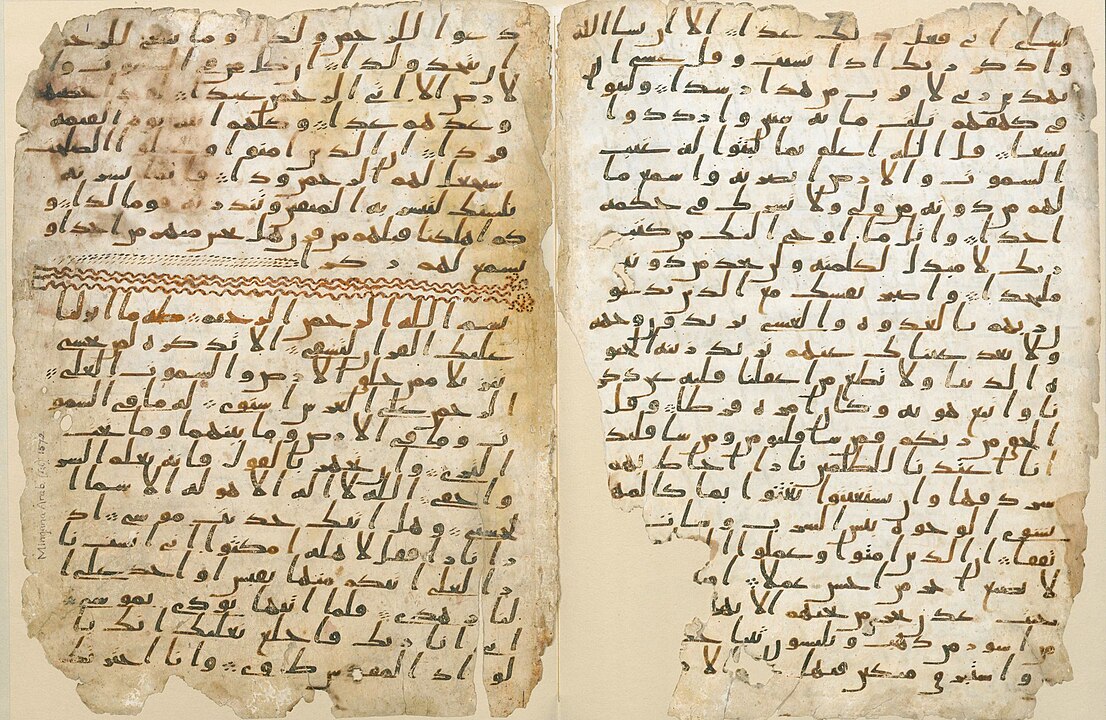 لشاى انى فعل ذلك غدا الا ان يشا الله
واذكر ربك اذا نسيت وقل عسى ا
يهدين ربى لاقرب من هذا رشدا ولبثوا
فى كهفهم ثلث مائة سنين وازددوا
تسعا قل الله اعلم بما لبثوا له غيب
السموت والارض ابصر به واسمع ما
لهم من دونه من ولى ولا يشرك فى حكمه
احدا واتل ما اوحى اليك من كتب
ربك لا مبدل لكلمته ولن تجد من دونه
ملتحدا واصبر نفسك مع الذين يدعو
ن ربهم بالغدوة والعشى يريدون وجهه
ولا تعد عيناك عنهم تريد زينة الحيو
ة الدنيا ولا تطع من اغفلنا قلبه عن ذكر
نا واتبع هويه وكان امره فرطا وقل
الحق من ربكم فمن شا فليومن ومن شا فليكفر
انا اعتدنا للظلمين نارا احاط بهم
سردقها وان يستغيثوا يغثوا بما كالمه
يشوى الوجوه بئس الشرب وسات
تفقا ان الذين امنوا وعملوا ا
لا نضيع اجر من احسن عملا او
جنت عدن تجرى من تحتهم الانهر
من اسور من ذهب ويلبسون ثيابا خ
واستبرق متكين فيها الا
دعوا للرحمن ولدا وما ينبغى للرحمن
ان يتخذ ولدا ان كل من فى السموت وا
لارض الا اتى الرحمن عبدا لقد احصهم
وعدهم عدا وكلهم اتيه يوم القيمة
فردا ان الذين امنوا وعملوا الصلحت
سيجعل لهم الرحمن ودا فانما يسرنه
بلسنك لتبشر به المتقين وتنذر به قوما لدا و
كم اهلكنا قبلهم من قرن هل تحس منهم من احد او
تسمع لهم ركزا
بسم الله الرحمن الرحيم طه ما انزلنا
عليك القران لتشقى الا تذكرة لمن يخشى
تنزيلا ممن خلق الارض والسموت العلى
الرحمن على العرش استوى له ما فى السمو
ت وما فى الارض وما بينهما وما تحت
الثرى وان تجهر بالقول فانه يعلم السر
واخفى الله لا اله الا هو له الاسما ا
لحسنى وهل اتيك حديث موسى اذ
را نارا فقال لاهله امكثوا انى انست نا
را لعلى اتيكم منها بقبس او اجد على ا
لنار هدى فلما اتيها نودى يموسى
انى انا ربك فاخلع نعليك انك با
لواد المقدس طوى وانا اخترتك
Mingana Arab. (Is) 1572